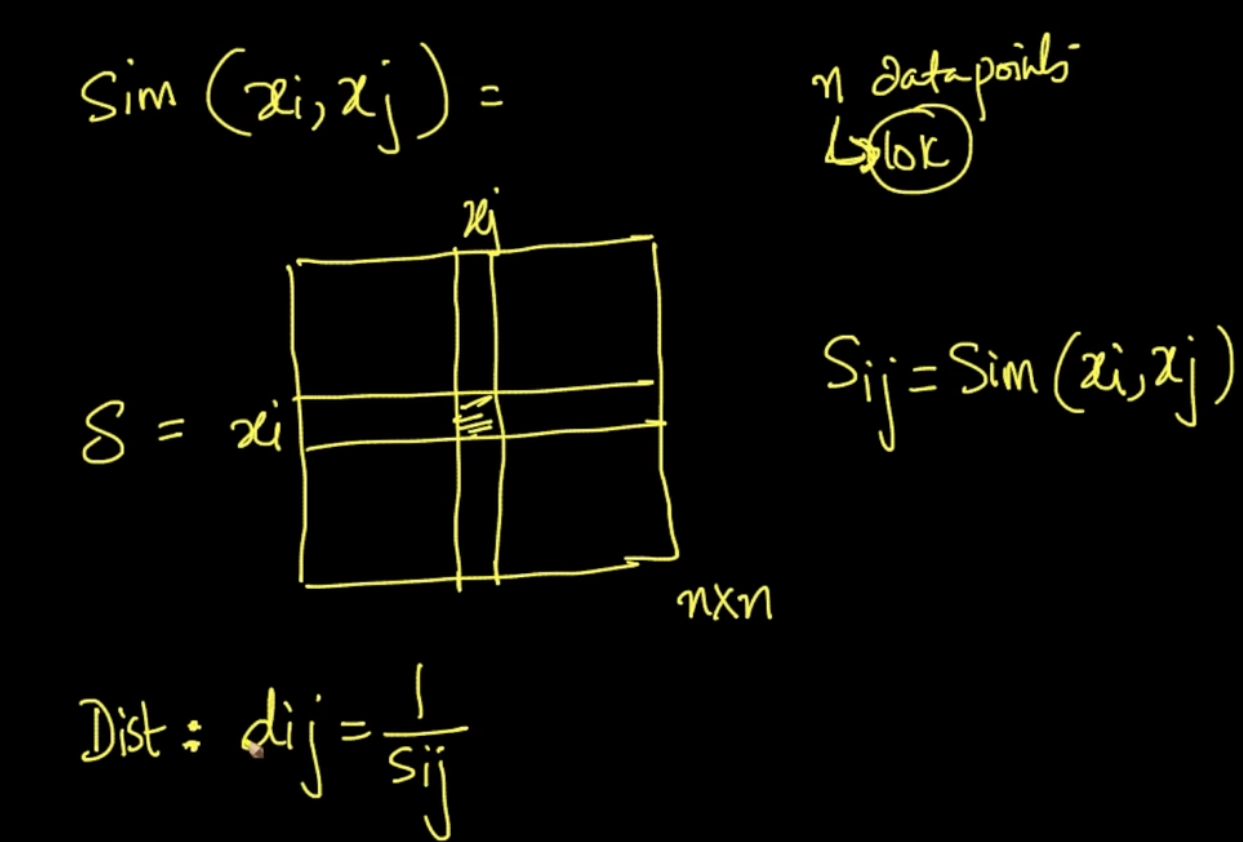 Sim (xi, xj) =
n datapoints
↳ 10K
xj
S = xi
Sij = Sim (xi, xj)
n×n
Dist : dij = 1/sij